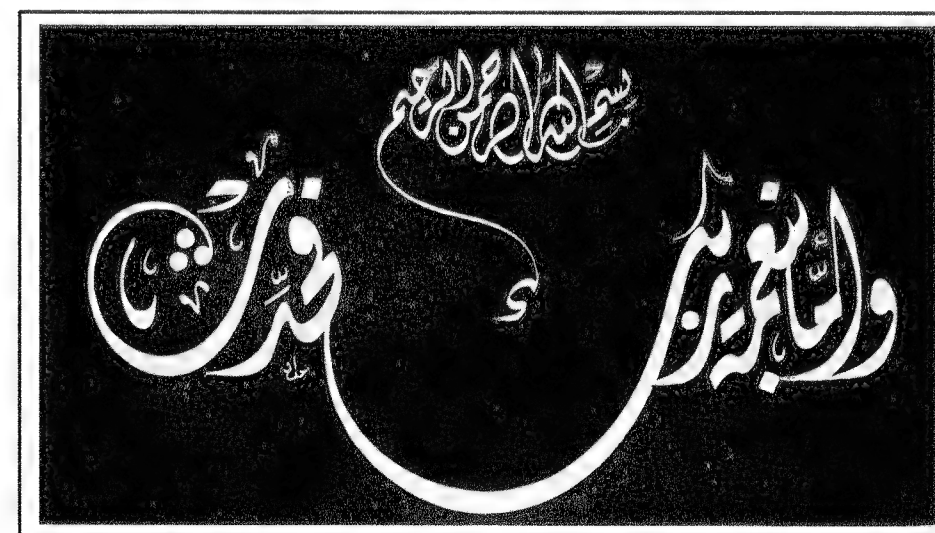 بسم الله الرحمن الرحيم
وأما بنعمة ربك فحدث